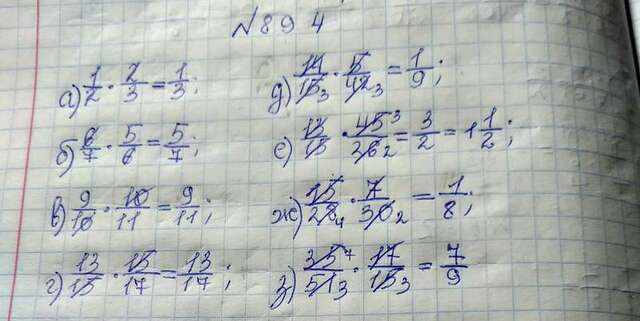 №894
а) 1/2 · 2/3 = 1/3;
б) 6/7 · 5/6 = 5/7;
в) 9/10 · 10/11 = 9/11;
г) 13/15 · 15/17 = 13/17;
д) 14/15 3 · 5/42 3 = 1/9;
е) 13/15 · 45 3/26 2 = 3/2 = 1 1/2;
ж) 15/28 4 · 7/30 2 = 1/8;
з) 35 7/51 3 · 17/15 3 = 7/9